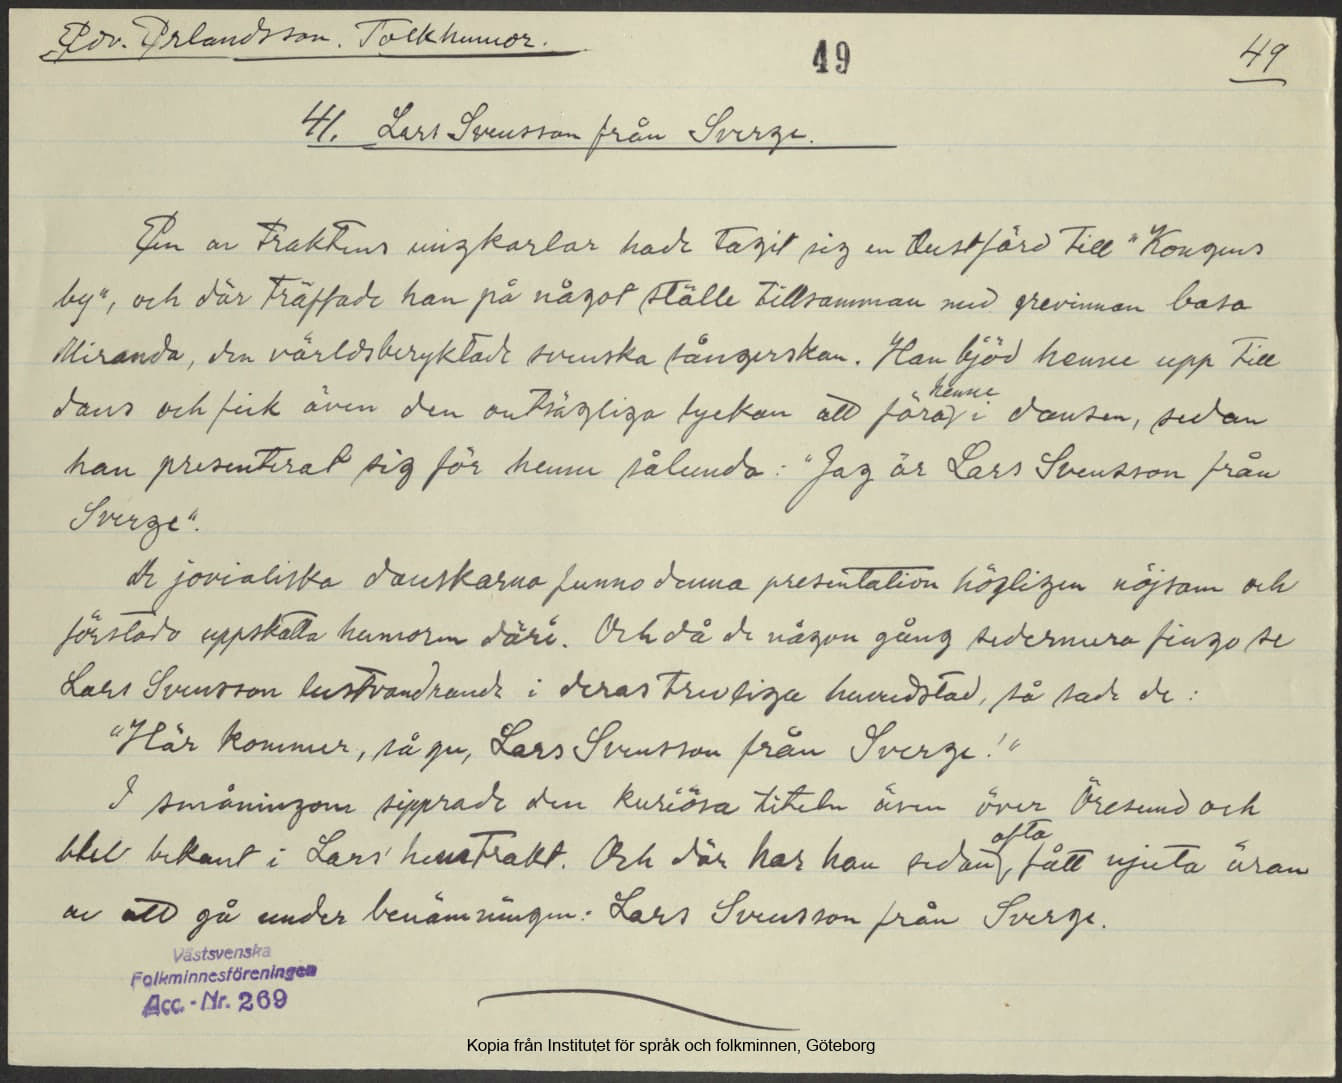 Edv. Erlandsson. Folkhumor.
49
49
41. Lars Svensson från Sverge.
En av traktens ungkarlar hade tagit sig en lustfärd till "Kongens
by", och där träffade han på något ställe tillsamman med grevinnan Casa
Miranda, den världsberyktade svenska sångerskan. Han bjöd henne upp till
dans och fick även den outsägliga lyckan att föra henne i dansen, sedan
han presenterat sig för henne sålunda: "Jag är Lars Svensson från
Sverge".
De jovialiska danskarna funno denna presentation högligen nöjsam och
förstodo uppskatta humorn däri. Och då de någon gång sedermera fingo se
Lars Svensson lustvandrande i deras trevliga huvudstad, så sade de:
"Här kommer, så gu, Lars Svensson från Sverge!"
I småningom sipprade den kuriösa titeln även över Öresund och
blev bekant i Lars' hemtrakt. Och där har han sedan ofta fått njuta äran
av att gå under benämningen: Lars Svensson från Sverge.
Västsvenska
Folkminnesföreningen
Acc.-Nr. 269
Kopia från Institutet för språk och folkminnen, Göteborg